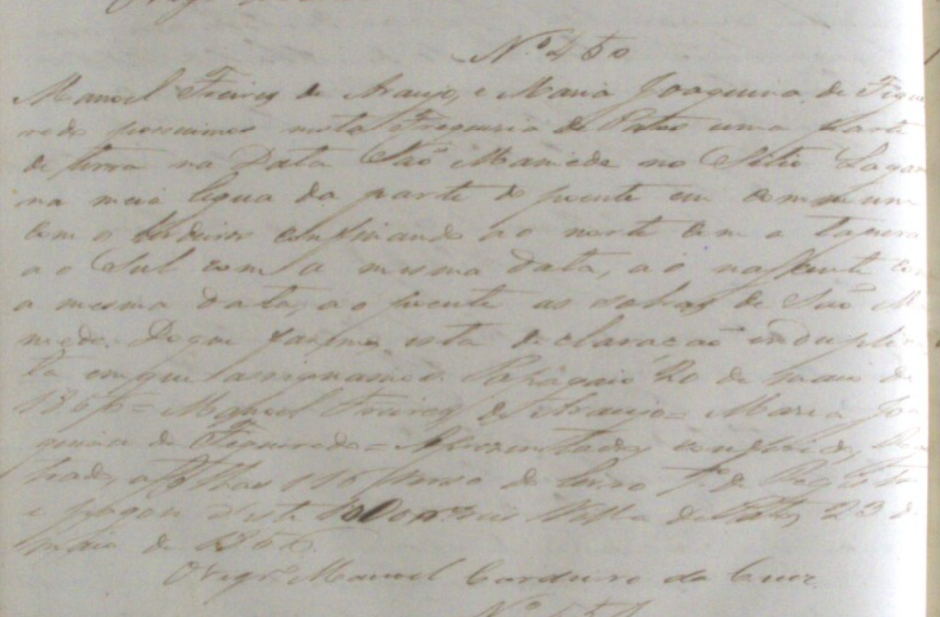 Nº 450
Manoel Freires de Araujo, e Maria Joaquina de Figue
redo possuimos nesta Freguesia de Patos uma parte
de terra na Data São Mamede no Sitio Lagoa
na meia legua da parte do poente em commum
com os erdeiros confinando ao norte com a Tapera
ao Sul com a mesma data, ao nascente com
a mesma data, ao poente as sobras de São Ma
mede. Do que fasemos esta declaração em duplica
ta em que assignamos. Papagaio 20 de maio de
1856 = Manoel Freires de Araujo = Maria Joa
quina de Figueredo = Apresentados conferidos
trados a folhas 116 verso do Livro 1º de Registo
e pagou deste reis Villa de Patos 23 de
maio de 1856
O Vigrº Manoel Cordeiro da Cruz
Nº 451